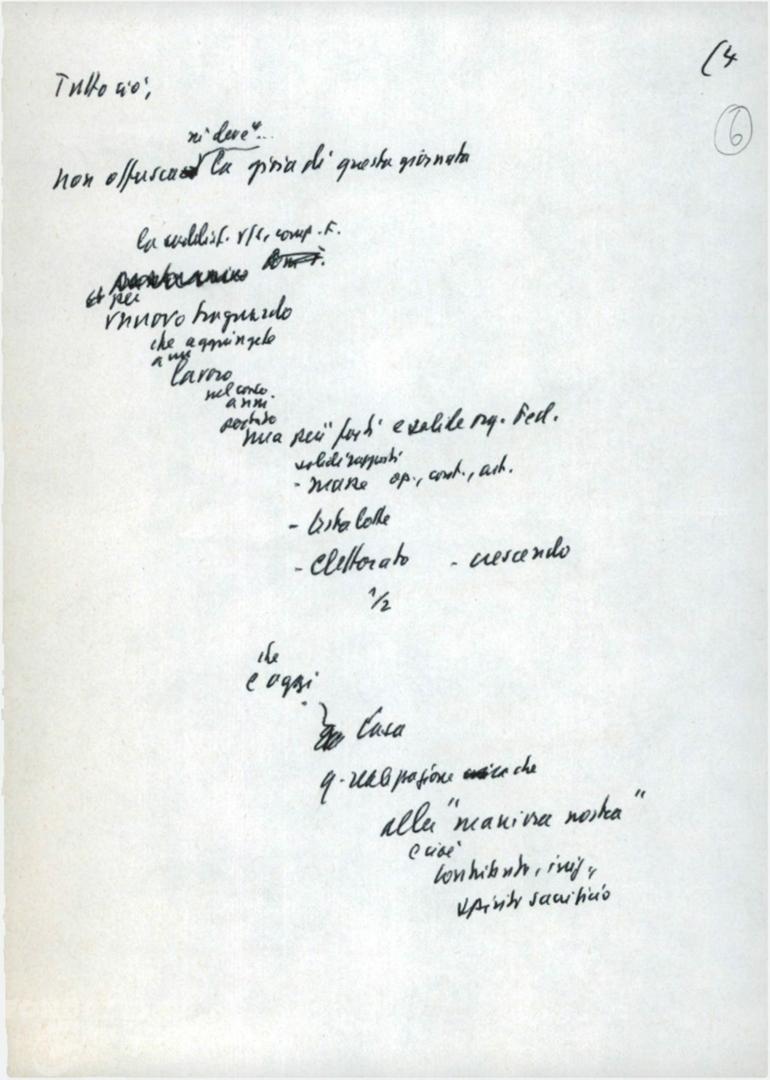 (4
6
Tutto ciò,
si deve"...
non offusca la gioia di questa giornata
la soddisf. v/s, comp. F.
et per
nuovo traguardo
che aggiungete
a un
lavoro
nel corso
anni
portato
una più forti e solide org. Fed.
solidi rapporti
- masse op., cont., art.
- lista lotte
- elettorato - crescendo
1/2
che
e oggi
Casa
q. realizzazione che
alla "maniera nostra"
e cioè
contributi, iniz.,
spirito sacrificio